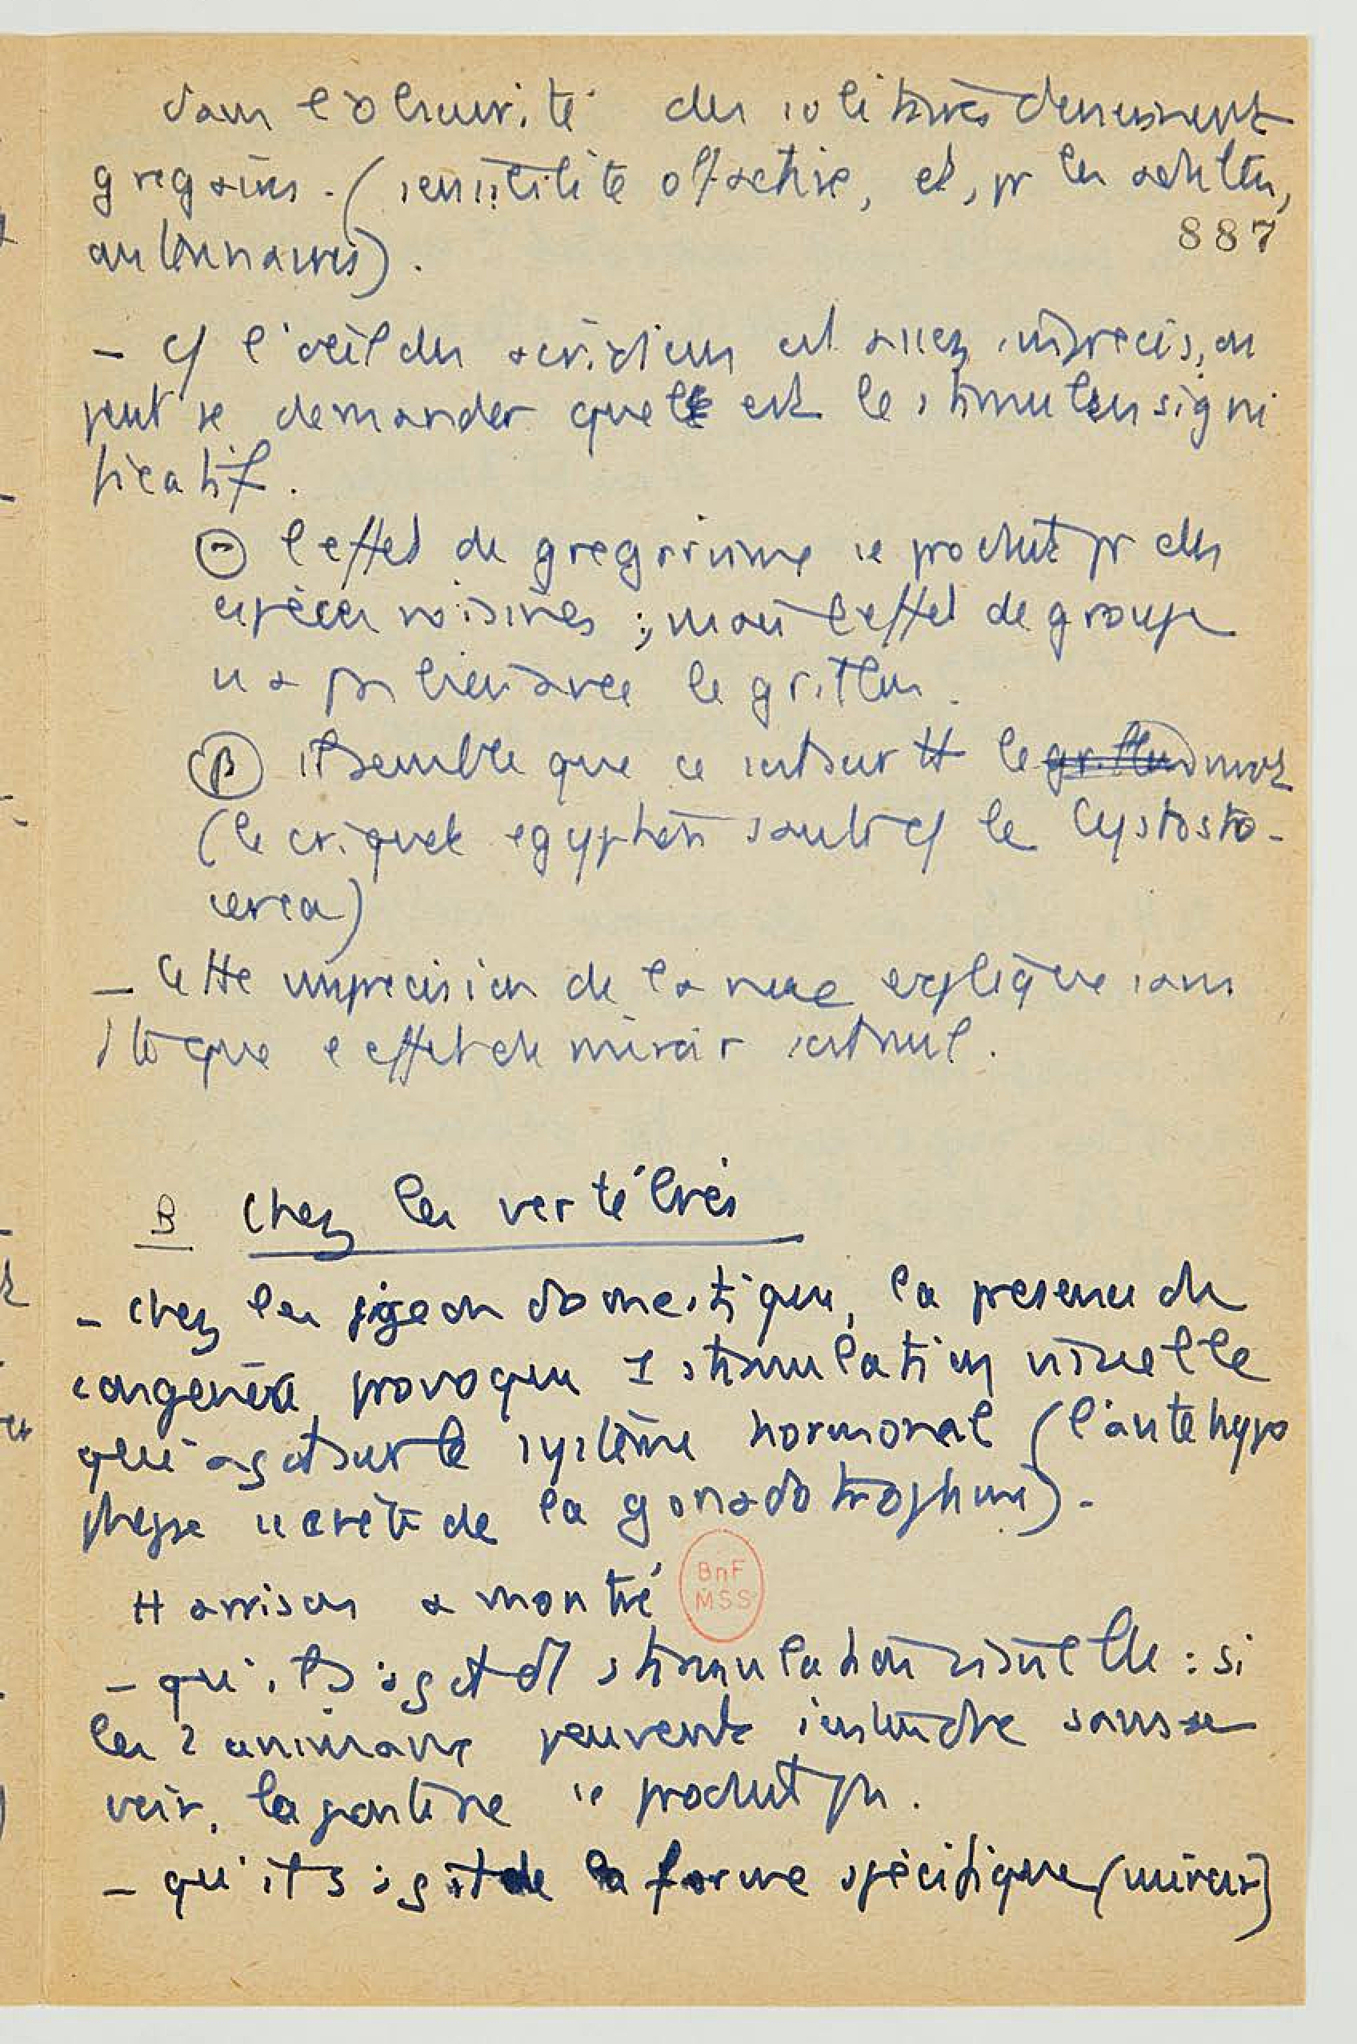 dans l'obscurité des solitaires deviennent
grégaires. (sensibilité olfactive, et, pr les adultes,
antennaires).
887
– cf l'œil des acridiens est assez imprécis, on
peut se demander quel est le stimulus signi
ficatif.
l'effet de grégarisme se produit pr des
espèces voisines ; mais l'effet de groupe
n'a pas lieu avec le grillon.
β il semble que ce soit sur tt le
(le criquet égyptien saute cf le Cystosto-
cerca)
– Cette imprécision de la vue explique sans
que l'effet de miroir soit nul.
B Chez les vertébrés
– chez les pigeon domestique, la présence de
congénère provoque 1 stimulation visuelle
qui agit sur le système hormonal (l'antéhypo
physe sécrète de la gonadotrophine).
Harrison a montré
BnF
MSS
– qu'il s'agit d' stimulation visuelle : si
les 2 animaux peuvent s'entendre sans se
voir, la ponte ne se produit pas.
– qu'il s'agit de la forme spécifique (miroir)